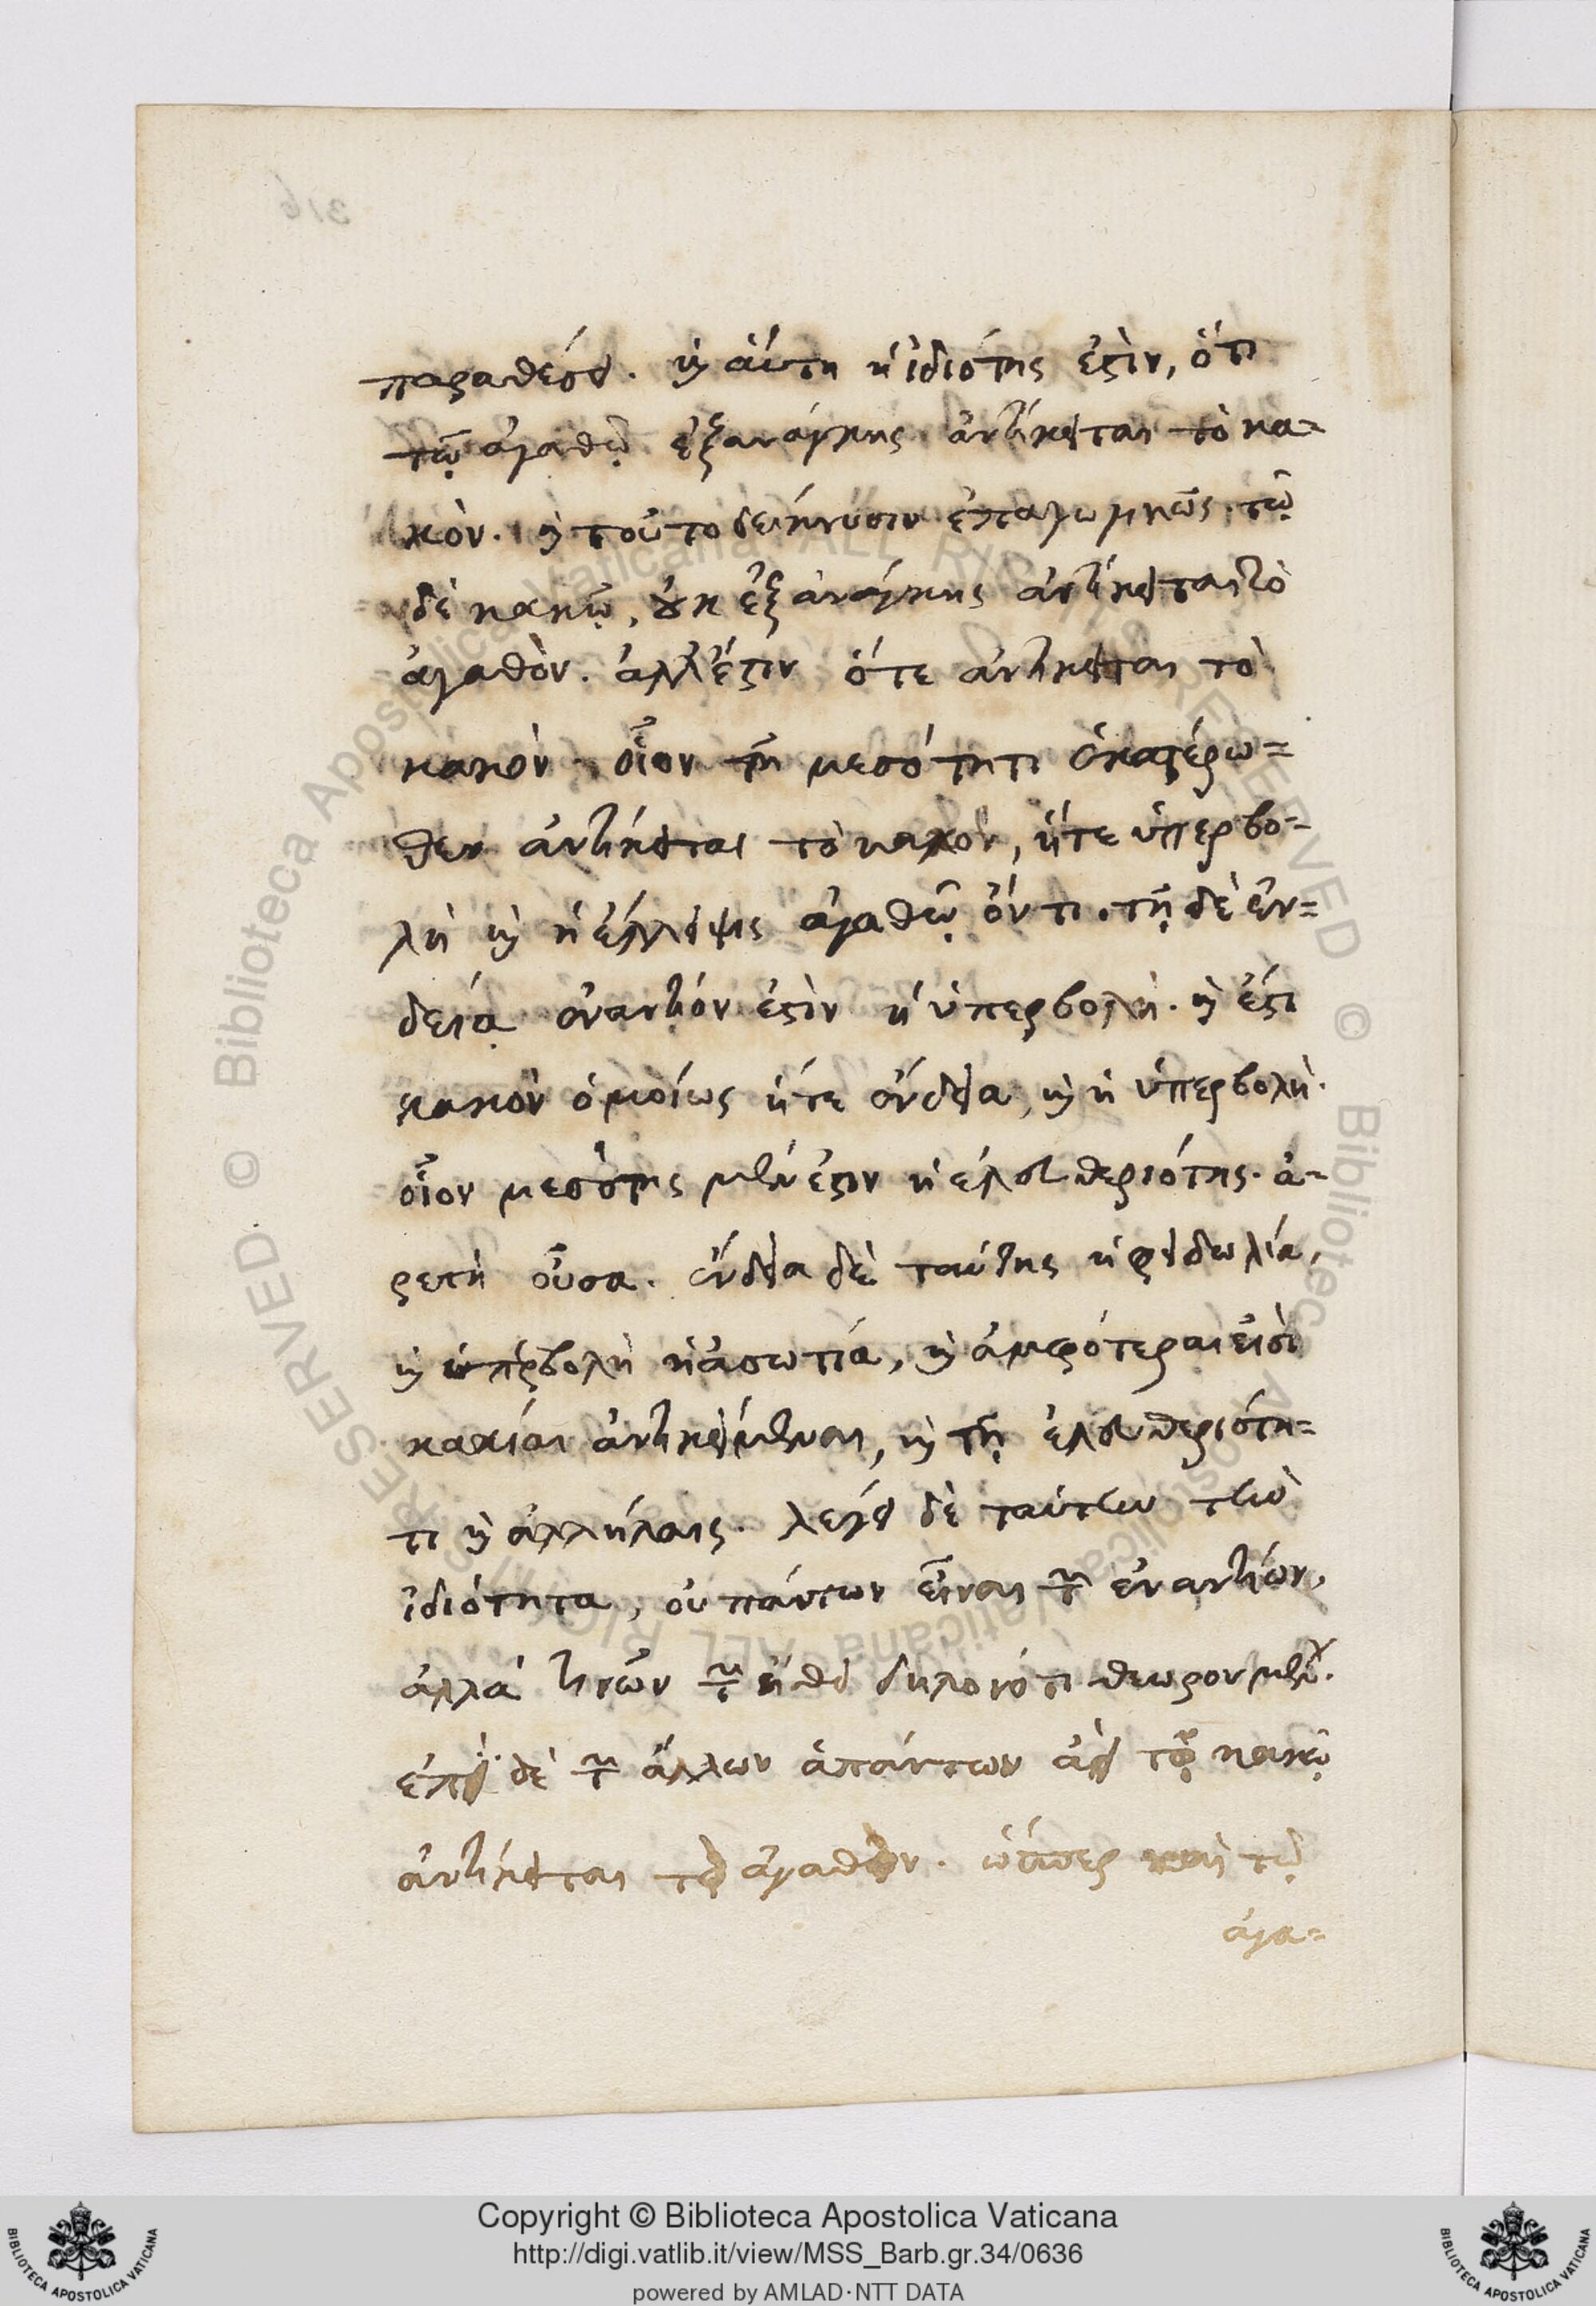 316
παραθέσει. καὶ αὕτη ἡ ἰδιότης ἐστὶν, ὅτι
τῷ ἀγαθῷ ἐξανάγκης ἀντίκειται τὸ κα-
κὸν. καὶ τοῦτο δείκνυσιν ἐπαγωγικῶς. τῷ
δὲ κακῷ, οὐκ ἐξ ἀνάγκης ἀντίκειται τὸ
ἀγαθὸν. ἀλλ' ἔστιν ὅτε ἀντίκειται τὸ
κακὸν. οἷον τῇ μεσότητι ἑκατέρω-
θεν ἀντίκειται τὸ κακὸν, ἥτε ὑπερβο-
λὴ καὶ ἡ ἔλλειψις ἀγαθῷ ὄντι. τῇ δὲ ἐν-
δείᾳ ἐναντίόν ἐστὶν ἡ ὑπερβολὴ. καὶ ἔστι
κακὸν ὁμοίως ἥτε ἔνδεια, καὶ ἡ ὑπερβολὴ.
οἷον μεσότης μέν ἐστιν ἡ ἐλευθεριότης. ἀ-
ρετὴ οὖσα. ἔνδεια δὲ ταύτης ἡ φειδωλία,
καὶ ὑπερβολὴ ἡ ἀσωτία, καὶ ἀμφότεραι εἰσὶ
κακίαι ἀντικείμεναι, καὶ τῇ ἐλευθεριότη-
τι καὶ ἀλλήλαις. λέγει δὲ ταύτην τὴν
ἰδιότητα, οὐ πάντων εἶναι τῶν ἐναντίων,
ἀλλὰ τινῶν τῶν ἤθει δηλονότι θεωρουμένων.
ἐπὶ δὲ τῶν ἄλλων ἁπάντων ἀεὶ τῷ κακῷ
ἀντίκειται τὸ ἀγαθὸν. ὥσπερ καὶ τῷ
ἀγα-
Copyright © Biblioteca Apostolica Vaticana
http://digi.vatlib.it/view/MSS_Barb.gr.34/0636
powered by AMLAD·NTT DATA